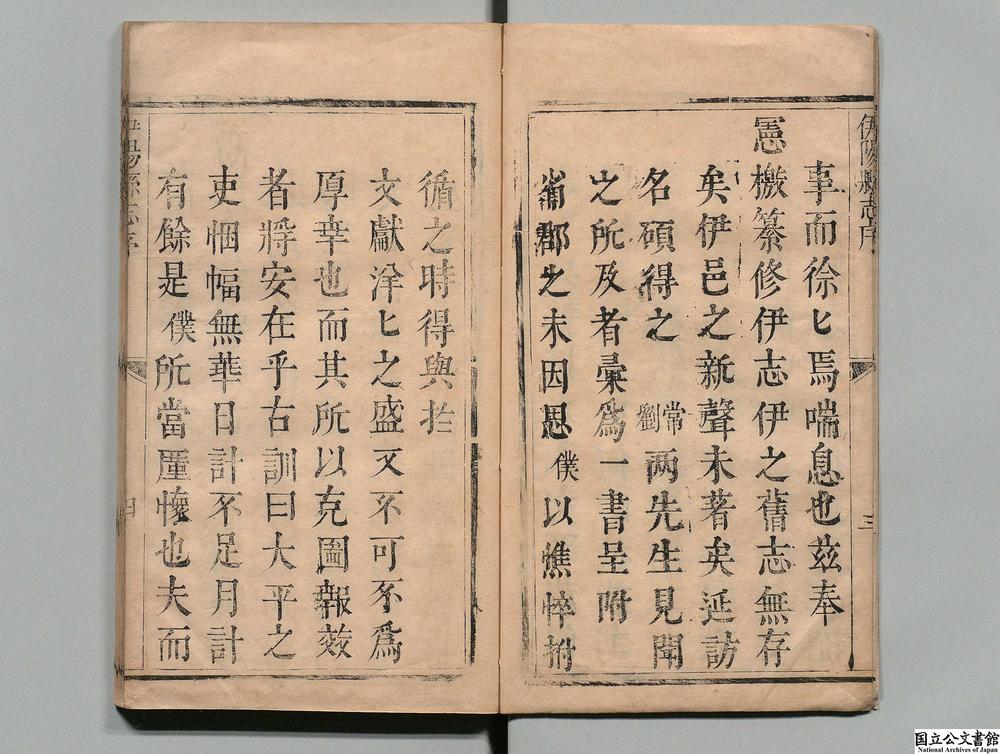 伊陽縣志序
三
事而徐匕焉喘息也玆奉
憲檄纂修伊志伊之舊志無存
矣伊邑之新聲未著矣延訪
名碩得之常劉兩先生見聞
之所及者彙爲一書呈附
省郡之末因思僕以憔悴拊
循之時得與扵
文獻洋匕之盛又不可不爲
厚幸也而其所以克圖報效
者將安在乎古訓曰太平之
吏悃愊無華日計不足月計
有餘是僕所當厪懷也夫而
伊陽縣志序
四
国立公文書館
National Archives of Japan